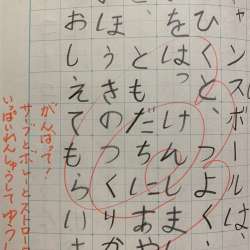 ャンスボールは、
ひくと、つよく
をはっけんしま
、ともだちにあや
ほうきのつくりか
おしえてもらい
がんばって！
サーブとボレーとストロー
いっぱいれんしゅうしてゆう